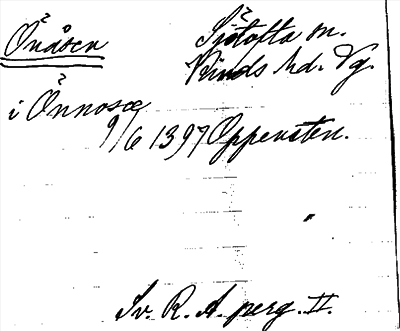 Önåsen
Sjötofta sn.
Kinds hd. Vg.
i Önnosæ
9/6 1397 Oppensten.
"
Sv. R. A. perg. II.